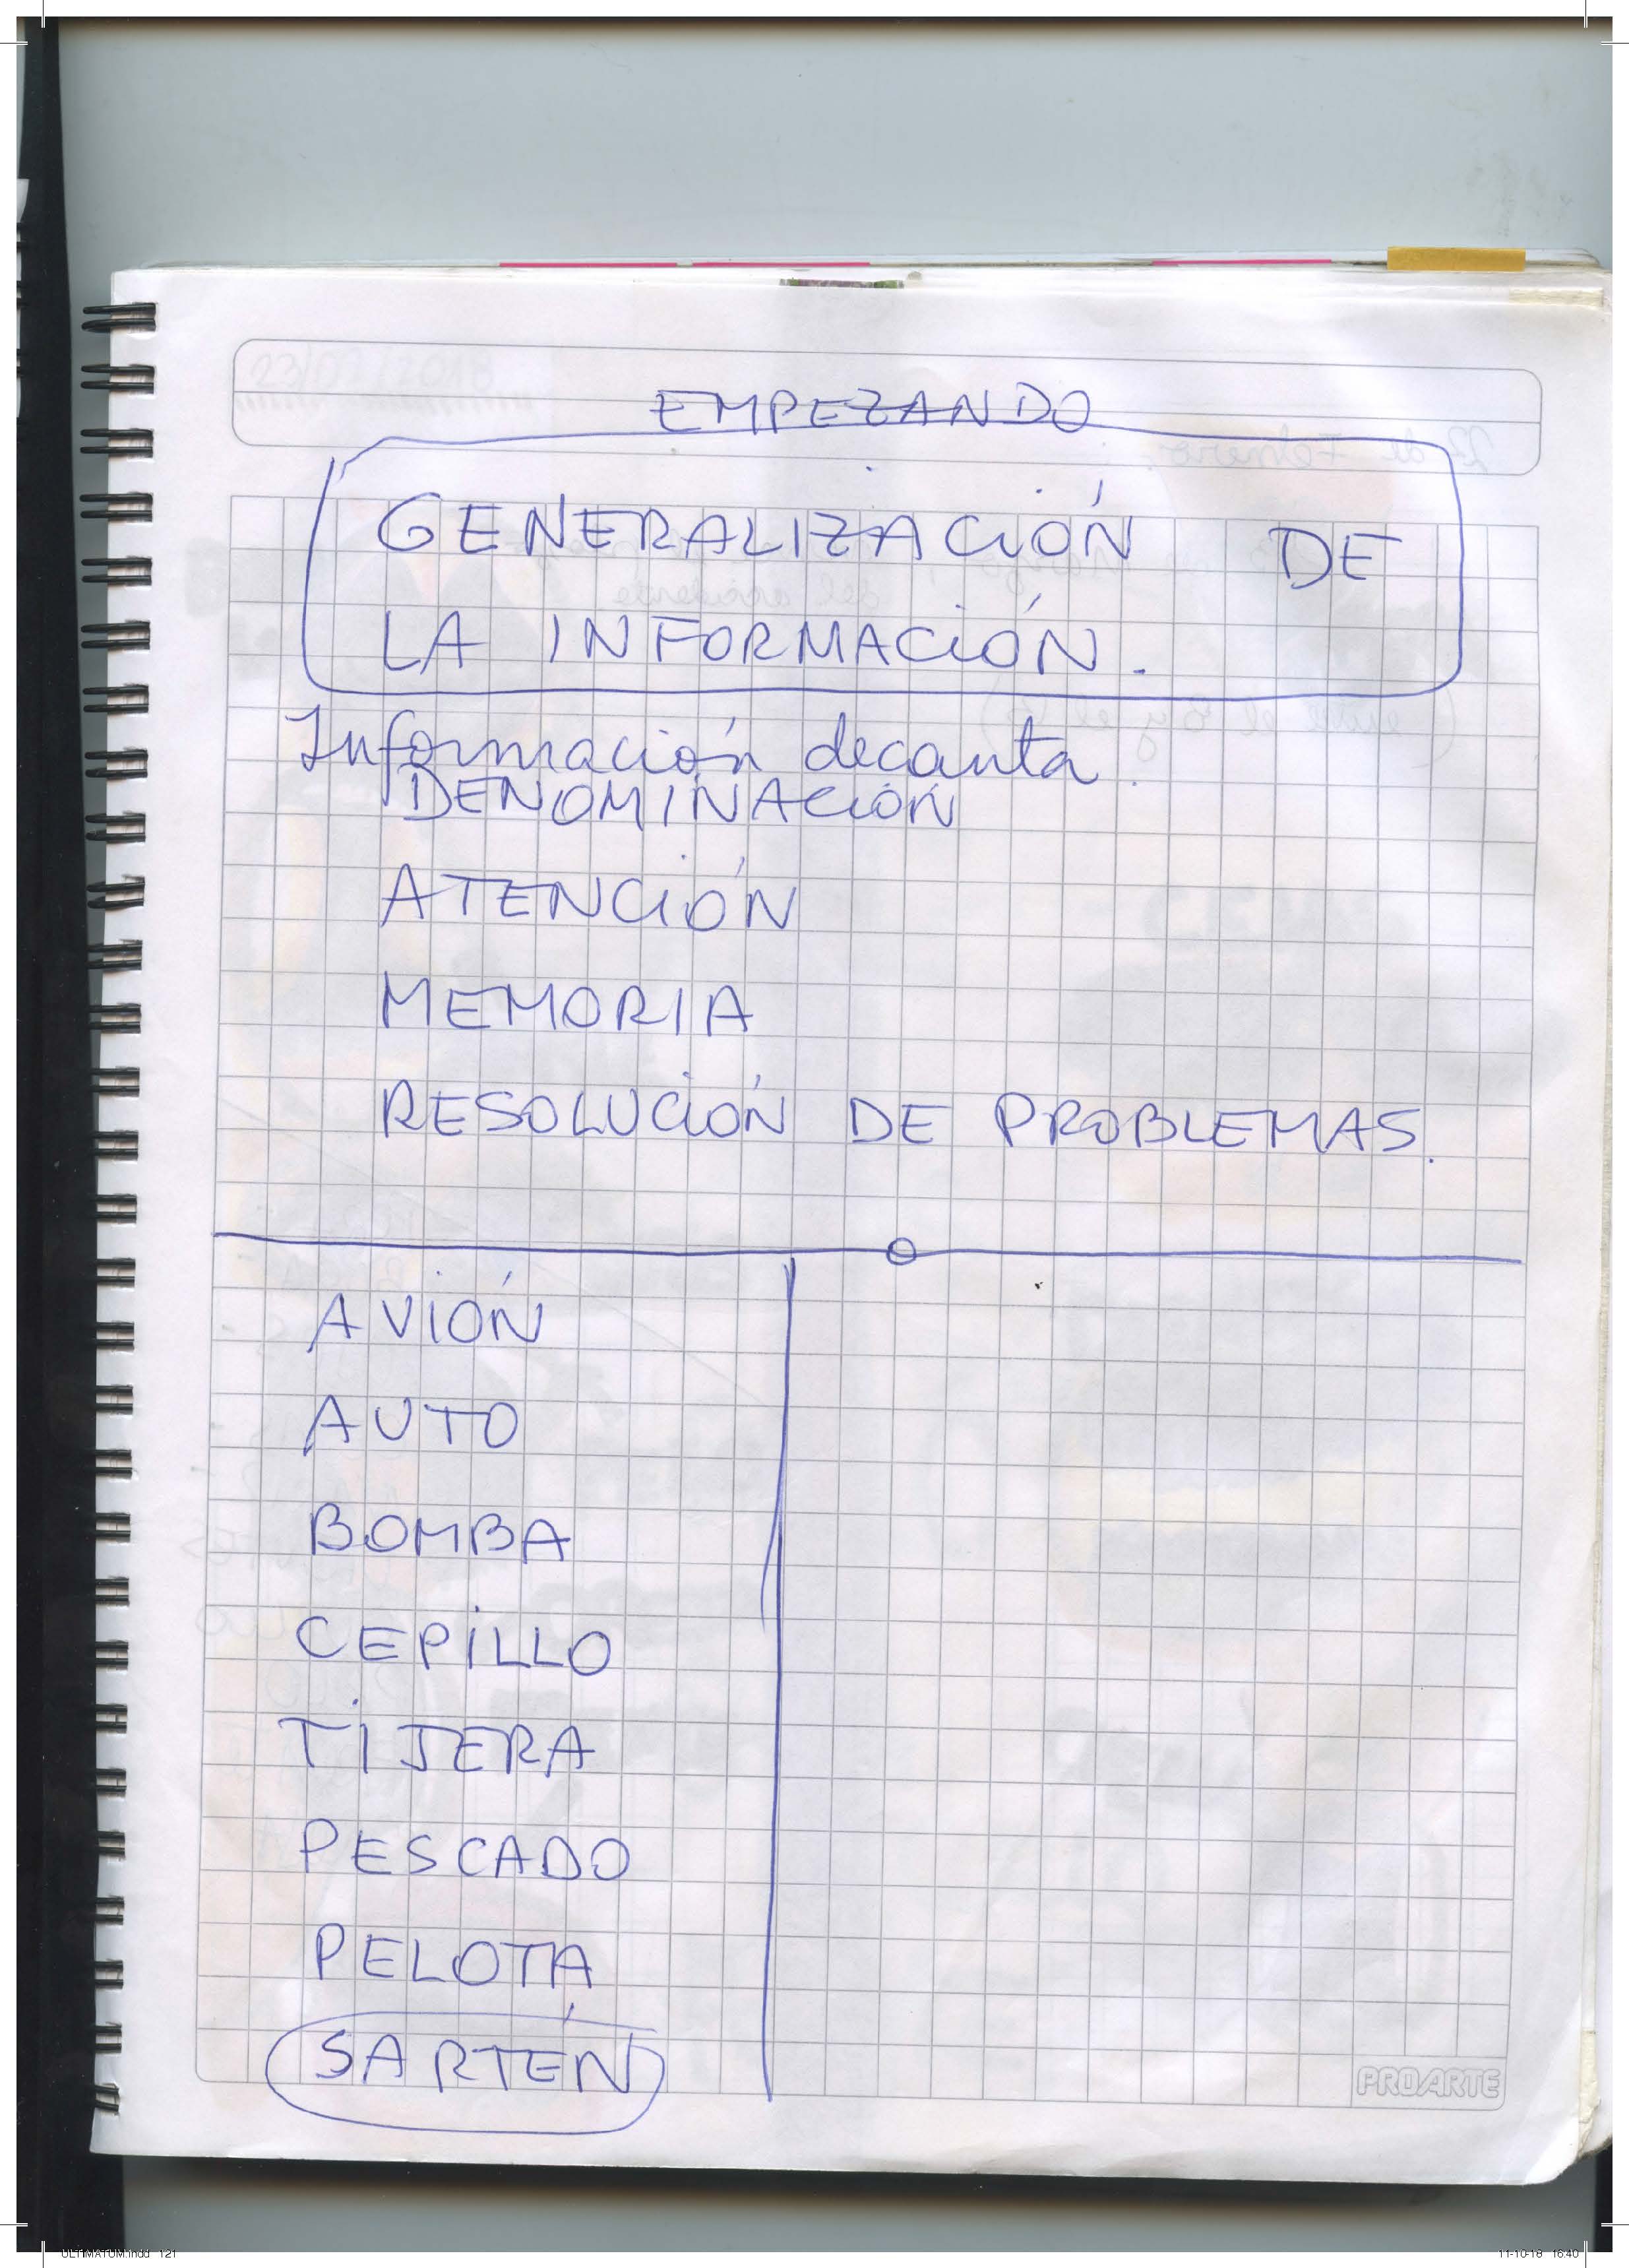 EMPEZANDO
GENERALIZACIÓN DE
LA INFORMACIÓN.
Información decanta.
DENOMINACIÓN
ATENCIÓN
MEMORIA
RESOLUCIÓN DE PROBLEMAS.
AVIÓN
AUTO
BOMBA
CEPILLO
TIJERA
PESCADO
PELOTA
SARTÉN
PROARTE
ULTIMATUM.indd 121
11-10-18 16:40